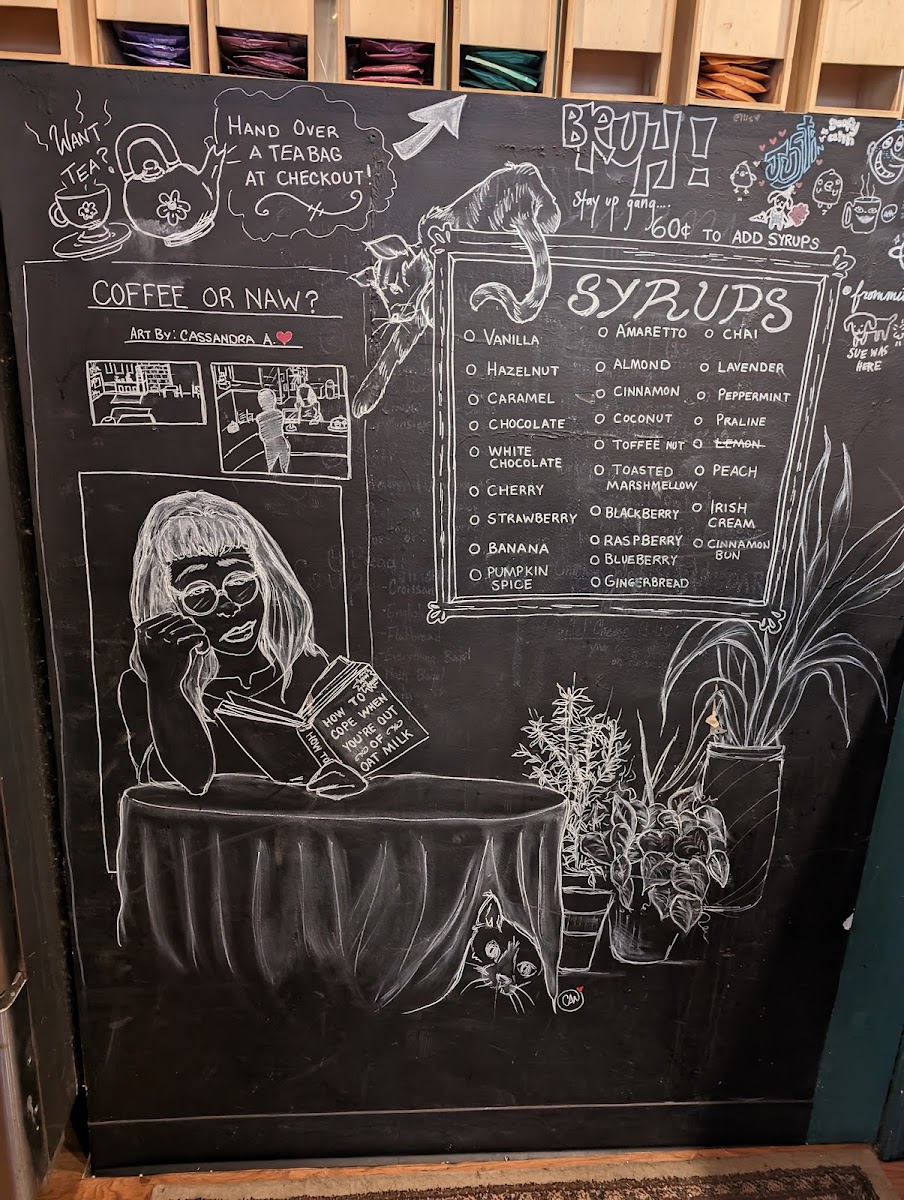 WANT
TEA?
HAND OVER
A TEA BAG
AT CHECKOUT!
BRUHH!
Stay up gang....
60¢ TO ADD SYRUPS
goofy
COFFEE OR NAW?
ART BY: CASSANDRA A.
SYRUPS
VANILLA
HAZELNUT
CARAMEL
CHOCOLATE
WHITE
CHOCOLATE
CHERRY
STRAWBERRY
BANANA
PUMPKIN
SPICE
AMARETTO
ALMOND
CINNAMON
COCONUT
TOFFEE NUT
TOASTED
MARSHMELLOW
BLACKBERRY
RASPBERRY
BLUEBERRY
GINGERBREAD
CHAI
LAVENDER
PEPPERMINT
PRALINE
LEMON
PEACH
IRISH
CREAM
CINNAMON
BUN
SUE WAS
HERE
HOW TO
COPE WHEN
YOU'RE OUT
OF
OAT MILK
CAN